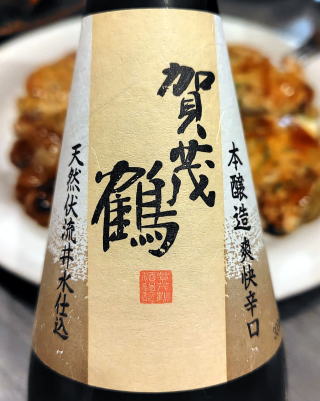 本醸造 爽快辛口
賀茂鶴
天然伏流井水仕込